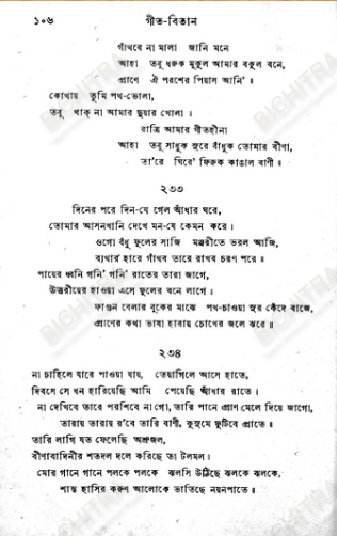 ১০৬ গীত-বিতান
গাঁথবে না মালা জানি মনে
আহা তবু ধরুক মুকুল আমার বকুল বনে,
প্রাণে ঐ পরশের পিয়াস আনি' ॥
কোথায় তুমি পথ-ভোলা,
তবু থাক্ না আমার দুয়ার খোলা ।
রাত্রি আমার গীতহীনা
আহা তবু সাধুক সুরে বাঁধুক তোমার বীণা,
তা'রে ঘিরে' ফিরুক কাঙাল বাণী ॥
২৩৩
দিনের পরে দিন-যে গেল আঁধার ঘরে,
তোমার আসনখানি দেখে মন-যে কেমন করে ।
ওগো বঁধু ফুলের সাজি মঞ্জরীতে ভরল আজি,
ব্যথার হারে গাঁথব তারে রাখব চরণ পরে ॥
পায়ের ধ্বনি গণি' গণি' রাতের তারা জাগে,
উত্তরীয়ের হাওয়া এসে ফুলের বনে লাগে ।
ফাগুন বেলার বুকের মাঝে পথ-চাওয়া সুর কেঁদে বাজে,
প্রাণের কথা ভাষা হারায় চোখের জলে ঝরে ॥
২৩৪
না চাহিলে যারে পাওয়া যায়, তেয়াগিলে আসে হাতে,
দিবসে সে ধন হারিয়েছি আমি পেয়েছি আঁধার রাতে ।
না দেখিবে তারে পরশিবে না গো, তারি পানে প্রাণ মেলে দিয়ে জাগো,
তারায় তারায় র'বে তারি বাণী, কুসুমে ফুটিবে প্রাতে ॥
তারি লাগি যত ফেলেছি অশ্রুজল,
বীণাবাদিনীর শতদল দলে করিছে তা টলমল ।
মোর গানে গানে পলকে পলকে ঝলসি উঠিছে ঝলকে ঝলকে,
শান্ত হাসির করুণ আলোকে ভাতিছে নয়নপাতে ॥
BICHITRA